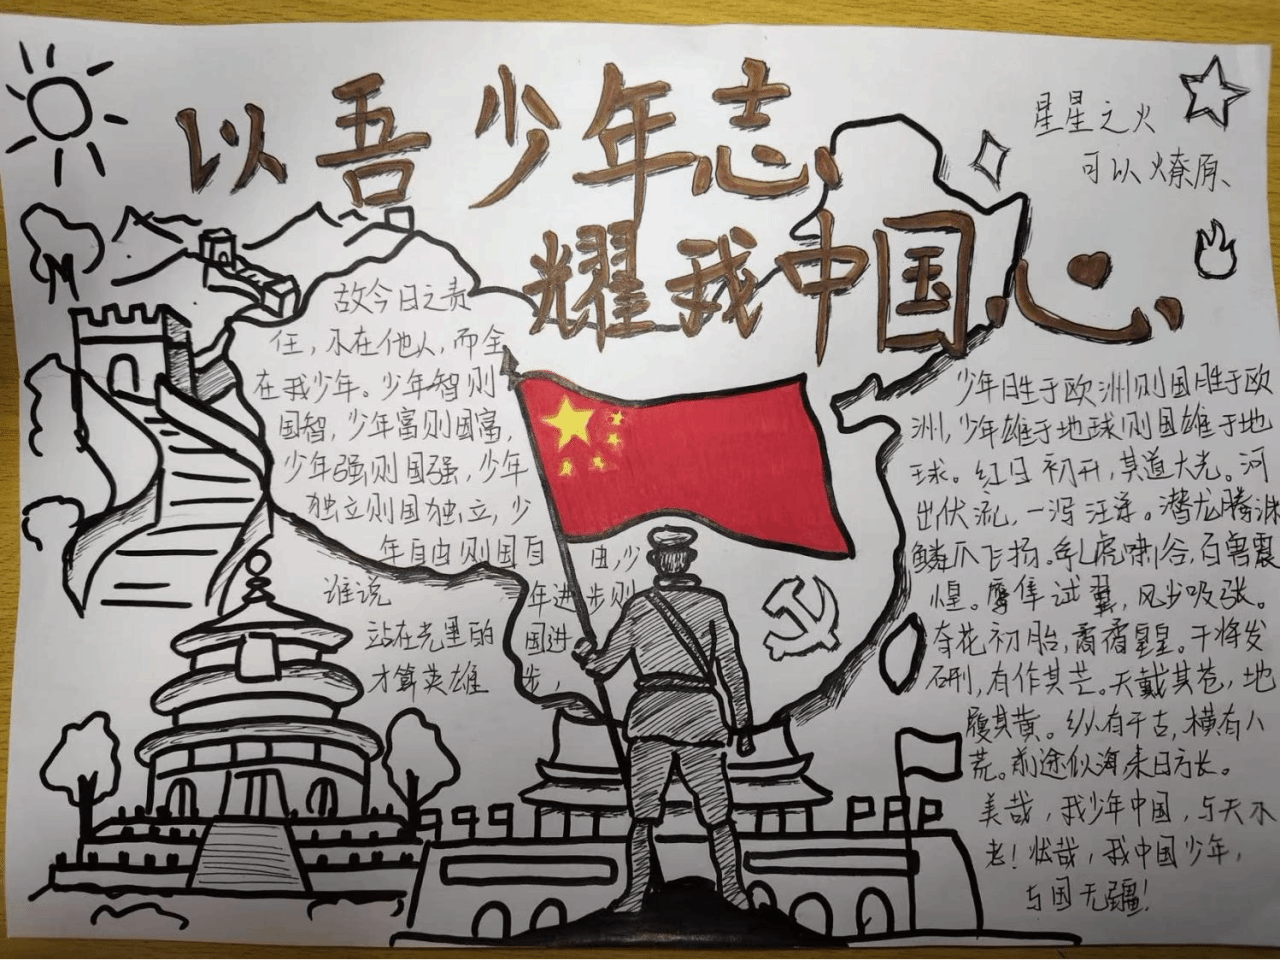 以吾少年志、
耀我中国心、
星星之火
可以燎原、
故今日之责
任，不在他人，而全
在我少年。少年智则
国智，少年富则国富，
少年强则国强，少年
独立则国独立，少
年自由则国自由，少
年进步则
国进
步，
谁说
站在光里的
才算英雄
少年胜于欧洲则国胜于欧
洲，少年雄于地球则国雄于地
球。红日初升，其道大光。河
出伏流，一泻汪洋。潜龙腾渊
鳞爪飞扬。乳虎啸谷，百兽震
惶。鹰隼试翼，风尘吸张。
奇花初胎，矞矞皇皇。干将发
硎，有作其芒。天戴其苍，地
履其黄。纵有千古，横有八
荒。前途似海来日方长。
美哉，我少年中国，与天不
老！壮哉，我中国少年，
与国无疆！